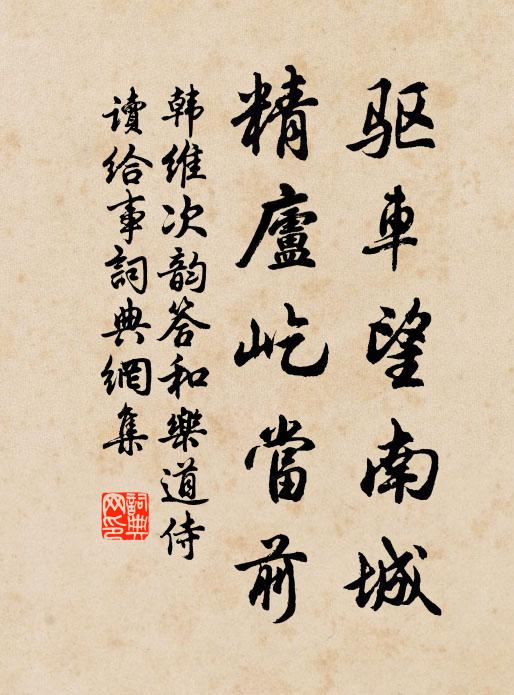 驱車望南城
精廬屹當前
韩維次韵答和樂道侍
讀給事詞典網集
詞典网印